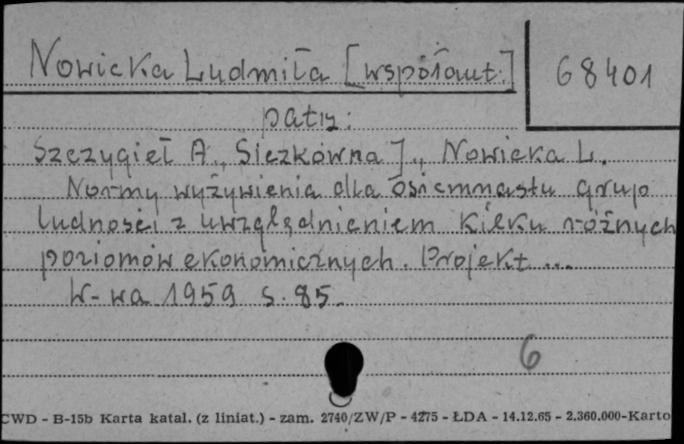 Nowicka Ludmiła [współaut.]
68401
patrz:
Szczygieł A., Siczkówna J., Nowicka L.
Normy wyżywienia dla osiemnastu grup
ludności z uwzględnieniem kilku różnych
poziomów ekonomicznych. Projekt ...
W-wa 1959 s. 85.
6
CWD - B-15b Karta katal. (z liniat.) - zam. 2740/ZW/P - 4275 - ŁDA - 14.12.65 - 2.360.000-Karto